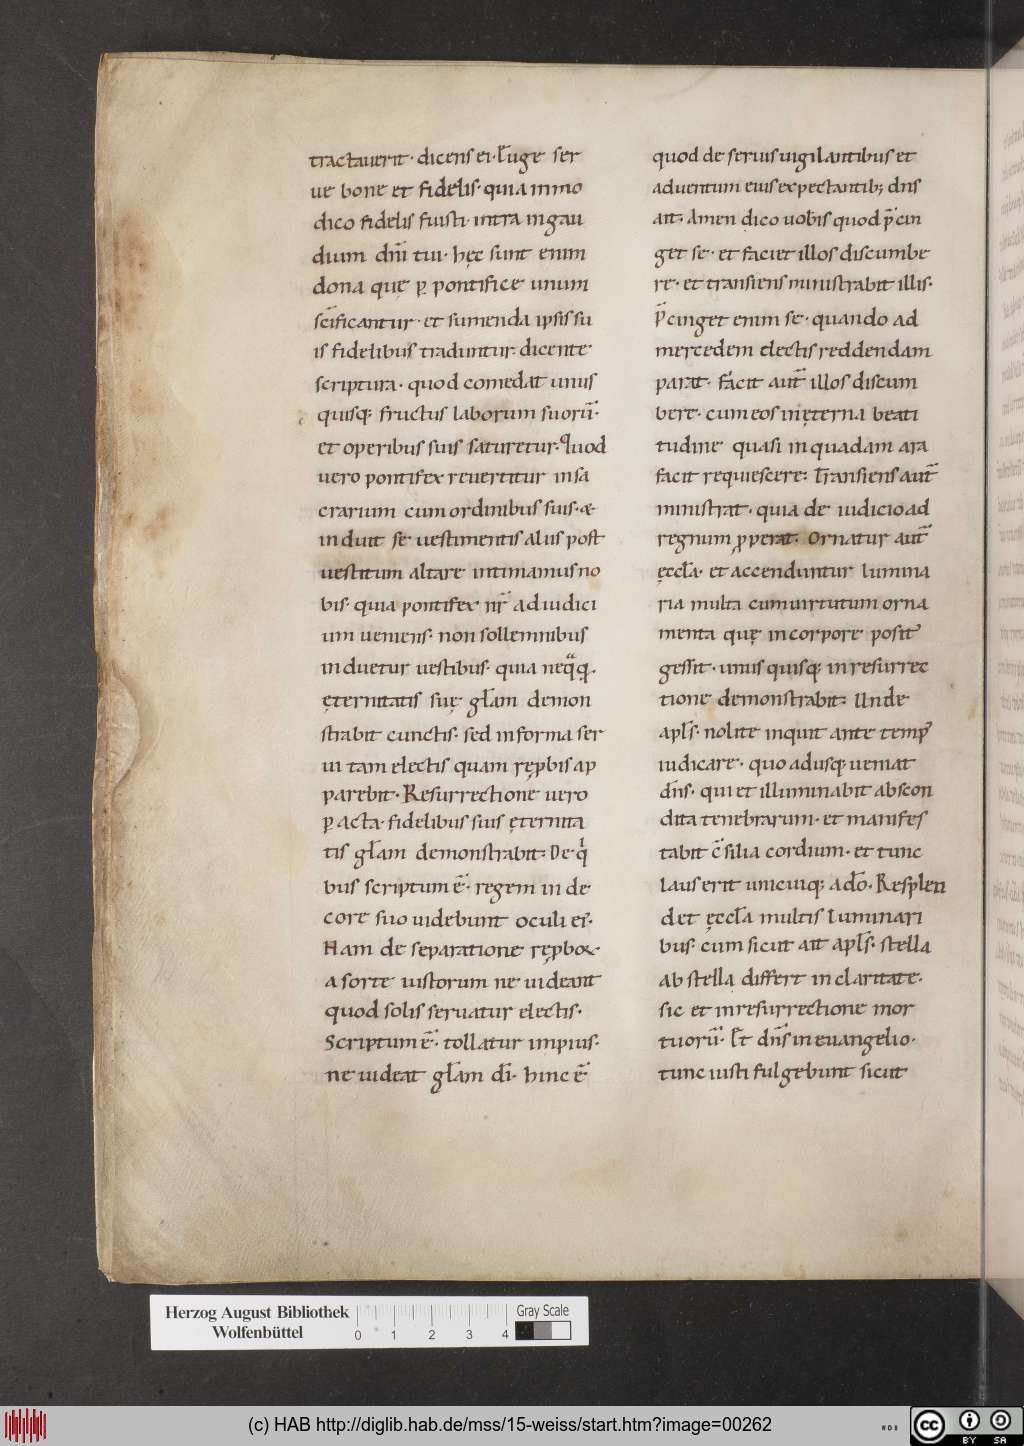 tractauerit· dicens ei· Euge ser
ue bone et fidelis· quia in mo
dico fidelis fuisti· intra in gau
dium dn̄i tui· hęc sunt enim
dona quę ꝑ pontifice unum
sc̄ificantur· et sumenda ipsis su
is fidelibus traduntur· dicente
scriptura· quod comedat unus
quisq; fructus laborum suorū·
et operibus suis saturetur· Quod
uero pontifex reuertitur in sa
crarium cum ordinibus suis· &
induit se uestimentis aliis post
uestitum altare intimamus no
bis· quia pontifex nr̄ ad iudici
um ueniens· non sollemnibus
induetur uestibus· quia neq̄q̄·
ęternitatis suę gl̄am demon
strabit cunctis· sed in forma ser
ui tam electis quam rępbis ap
parebit· Resurrectione uero
ꝑacta· fidelibus suis ęternita
tis gl̄am demonstrabit· De q
bus scriptum ē· regem in de
core suo uidebunt oculi ei·
Nam de separatione rępboꝝ·
a sorte iustorum ne uideant
quod solis seruatur electis·
Scriptum ē· tollatur impius·
ne uideat gl̄am dī· hinc ē
quod de seruis uigilantibus et
aduentum eius expectantib; dn̄s
ait· Amen dico uobis quod p̄cin
get se· et faciet illos discumbe
re· et transiens ministrabit illis·
P̄cinget enim se· quando ad
mercedem electis reddendam
parat· facit aut̄ illos discum
bere· cum eos in ęterna beati
tudine quasi in quadam ara
facit requiescere· Transiens aut̄
ministrat· quia de iudicio ad
regnum ꝓperat· Ornatur aut̄
ęccl̄a· et accenduntur lumina
ria multa cum uirtutum orna
menta quę in corpore posit᾽
gessit· unus quisq; in resurrec
tione demonstrabit· Unde
apl̄s· nolite inquit ante temp᾽
iudicare· quo adusq; ueniat
dn̄s· qui et illuminabit abscon
dita tenebrarum· et manifes
tabit c̄silia cordium· et tunc
laus erit unicuiq; a dō· Resplen
det ęccl̄a multis luminari
bus· cum sicut ait apl̄s· stella
ab stella differt in claritate·
sic et in resurrectione mor
tuorū· Et dn̄s in euangelio·
tunc iusti fulgebunt sicut
Herzog August Bibliothek
Wolfenbüttel
0 1 2 3 4
Gray Scale
(c) HAB http://diglib.hab.de/mss/15-weiss/start.htm?image=00262
cc BY SA